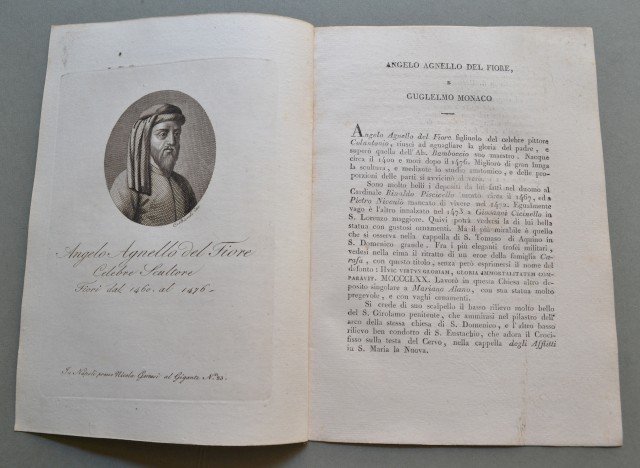 Angelo Agnello del Fiore
Celebre Scultore
Fiorì dal 1460. al 1476.
In Napoli presso Nicola Gervasi al Gigante N.º 23.
ANGELO AGNELLO DEL FIORE,
E
GUGLELMO MONACO
Angelo Agnello del Fiore figliuolo del celebre pittore
Colantonio, riuscì ad agguagliare la gloria del padre, e
superò quella dell'Ab. Bamboccio suo maestro. Nacque
circa il 1400 e morì dopo il 1476. Migliorò di gran lunga
la scultura, e mediante lo studio anatomico, e delle pro-
porzioni delle parti si avvicinò al vero.
Sono molto belli i depositi da lui fatti nel duomo al
Cardinale Rinaldo Piscicello morto circa il 1467, ed a
Pietro Niconio mancato di vivere nel 1472. Egualmente
vago è l'altro innalzato nel 1473 a Giovanni Cicinello in
S. Lorenzo maggiore. Quivi potrà vedersi la di lui bella
statua con gustosi ornamenti. Ma il più mirabile è quello
che si osserva nella cappella di S. Tomaso di Aquino in
S. Domenico grande. Fra i più eleganti trofei militari,
vedesi nella cima il ritratto di un eroe della famiglia Ca-
rafa, con questo titolo, senza però esprimersi il nome del
defonto: HVIC VIRTVS GLORIAM, GLORIA IMMORTALITATEM COM-
PARAVIT. MCCCCLXX. Lavorò in questa Chiesa altro de-
posito singolare a Mariano Alano, con sua statua molto
pregevole, e con vaghi ornamenti.
Si crede di suo scalpello il basso rilievo molto bello
del S. Girolamo penitente, che ammirasi nel pilastro dell'
arco della stessa chiesa di S. Domenico, e l'altro basso
rilievo ben condotto di S. Eustachio, che adora il Croci-
fisso sulla testa del Cervo, nella cappella degli Afflitti
in S. Maria la Nuova.